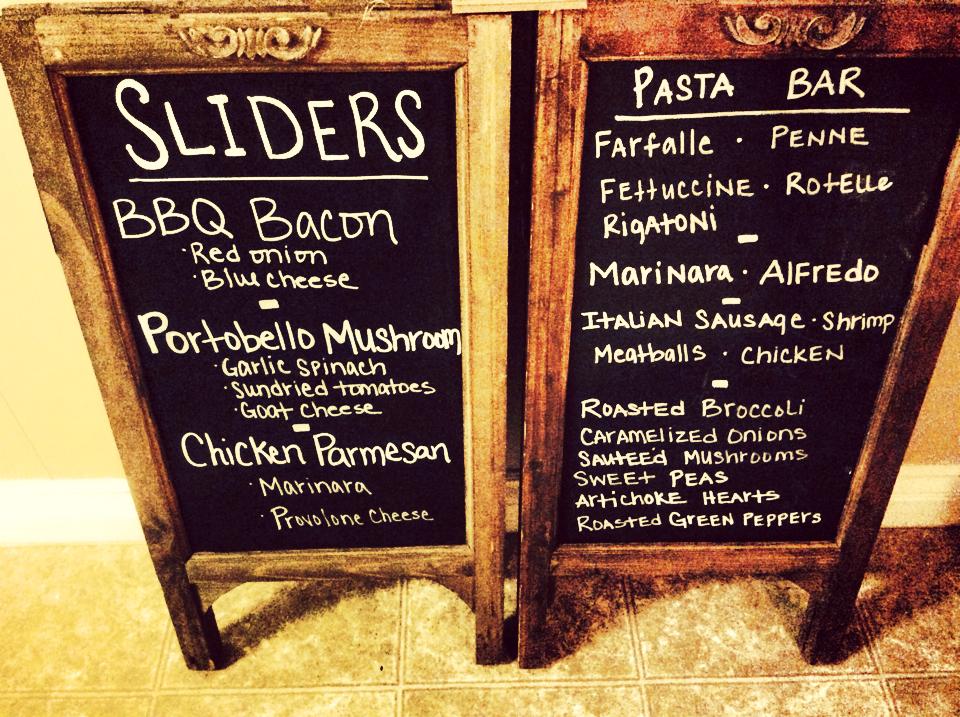 SLIDERS
BBQ Bacon
· Red onion
· Blue cheese
-
Portobello Mushroom
· Garlic Spinach
· Sundried tomatoes
· Goat cheese
-
Chicken Parmesan
· Marinara
· Provolone Cheese
PASTA BAR
Farfalle · PENNE
FettucciNE · Rotelle
RigAtoNi
-
MariNara · AlFredo
-
ItaliAN SAUSAge · Shrimp
Meatballs · ChickEN
-
ROASTEd BroccoLi
CARAMElizEd ONioNS
SAUTEEd MUSHROOMS
SWEEt PEAS
ARtichokE HEARtS
ROASTEd GREEN PEPPERS